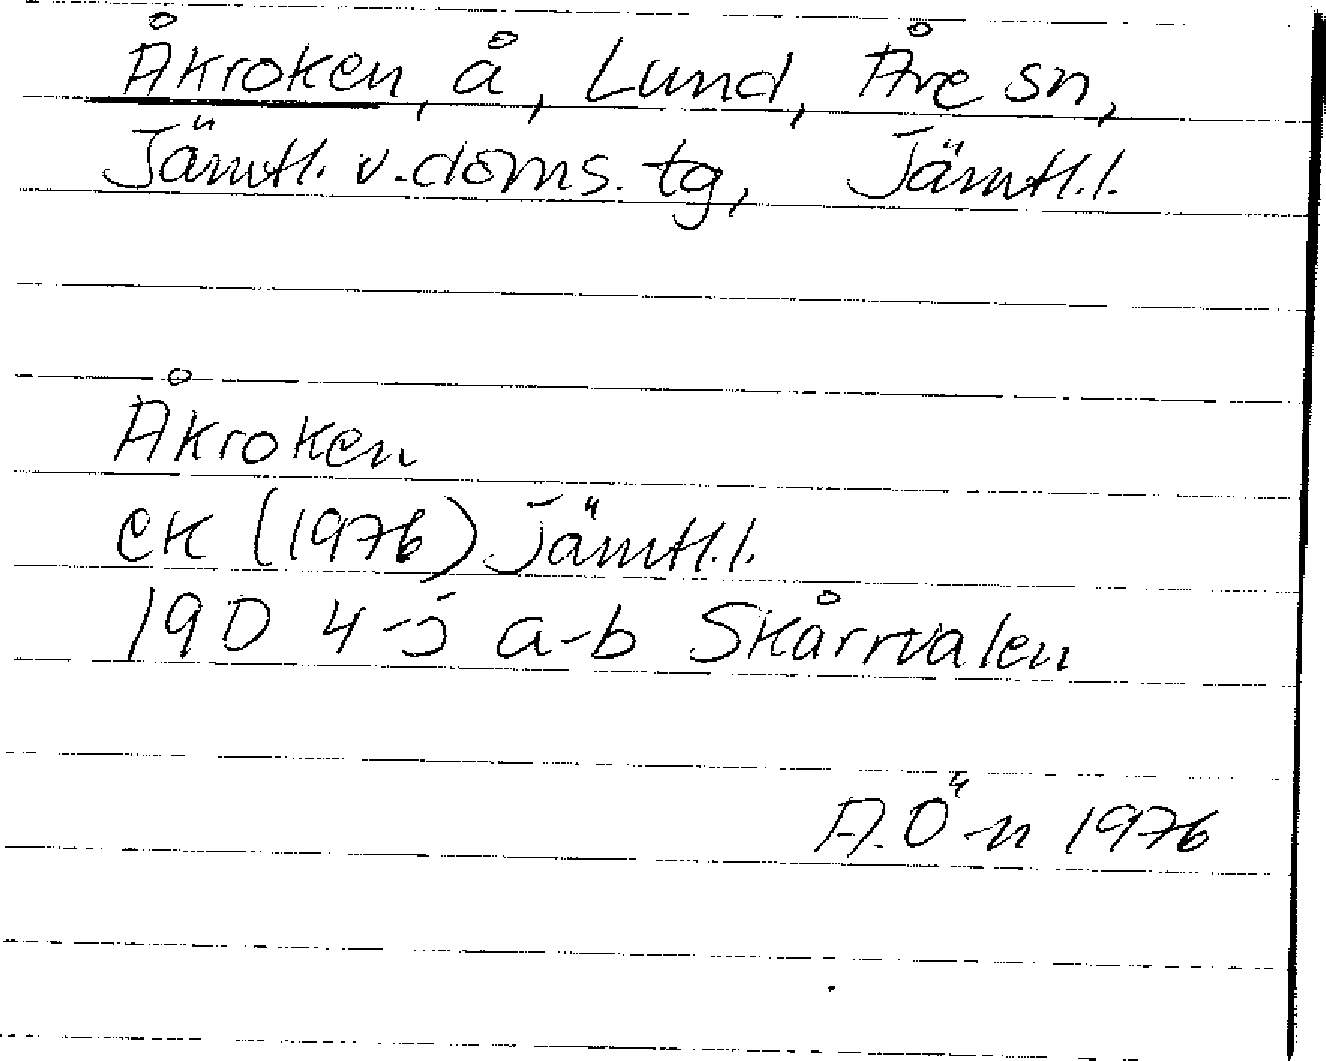 Åkroken, å, Lund, Åre sn,
Jämtl. v. doms. tg, Jämtl.l.
Åkroken
ek (1976) Jämtl.l.
19D 4-5 a-b Skårrvalen
A.Ö-n 1976